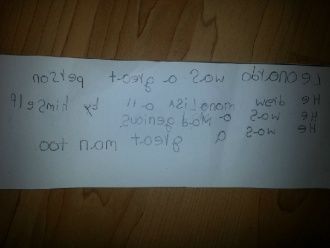 Leonardo was a great person
He drew monalisa all by himself
He was a mad genious.
He was a great man too.